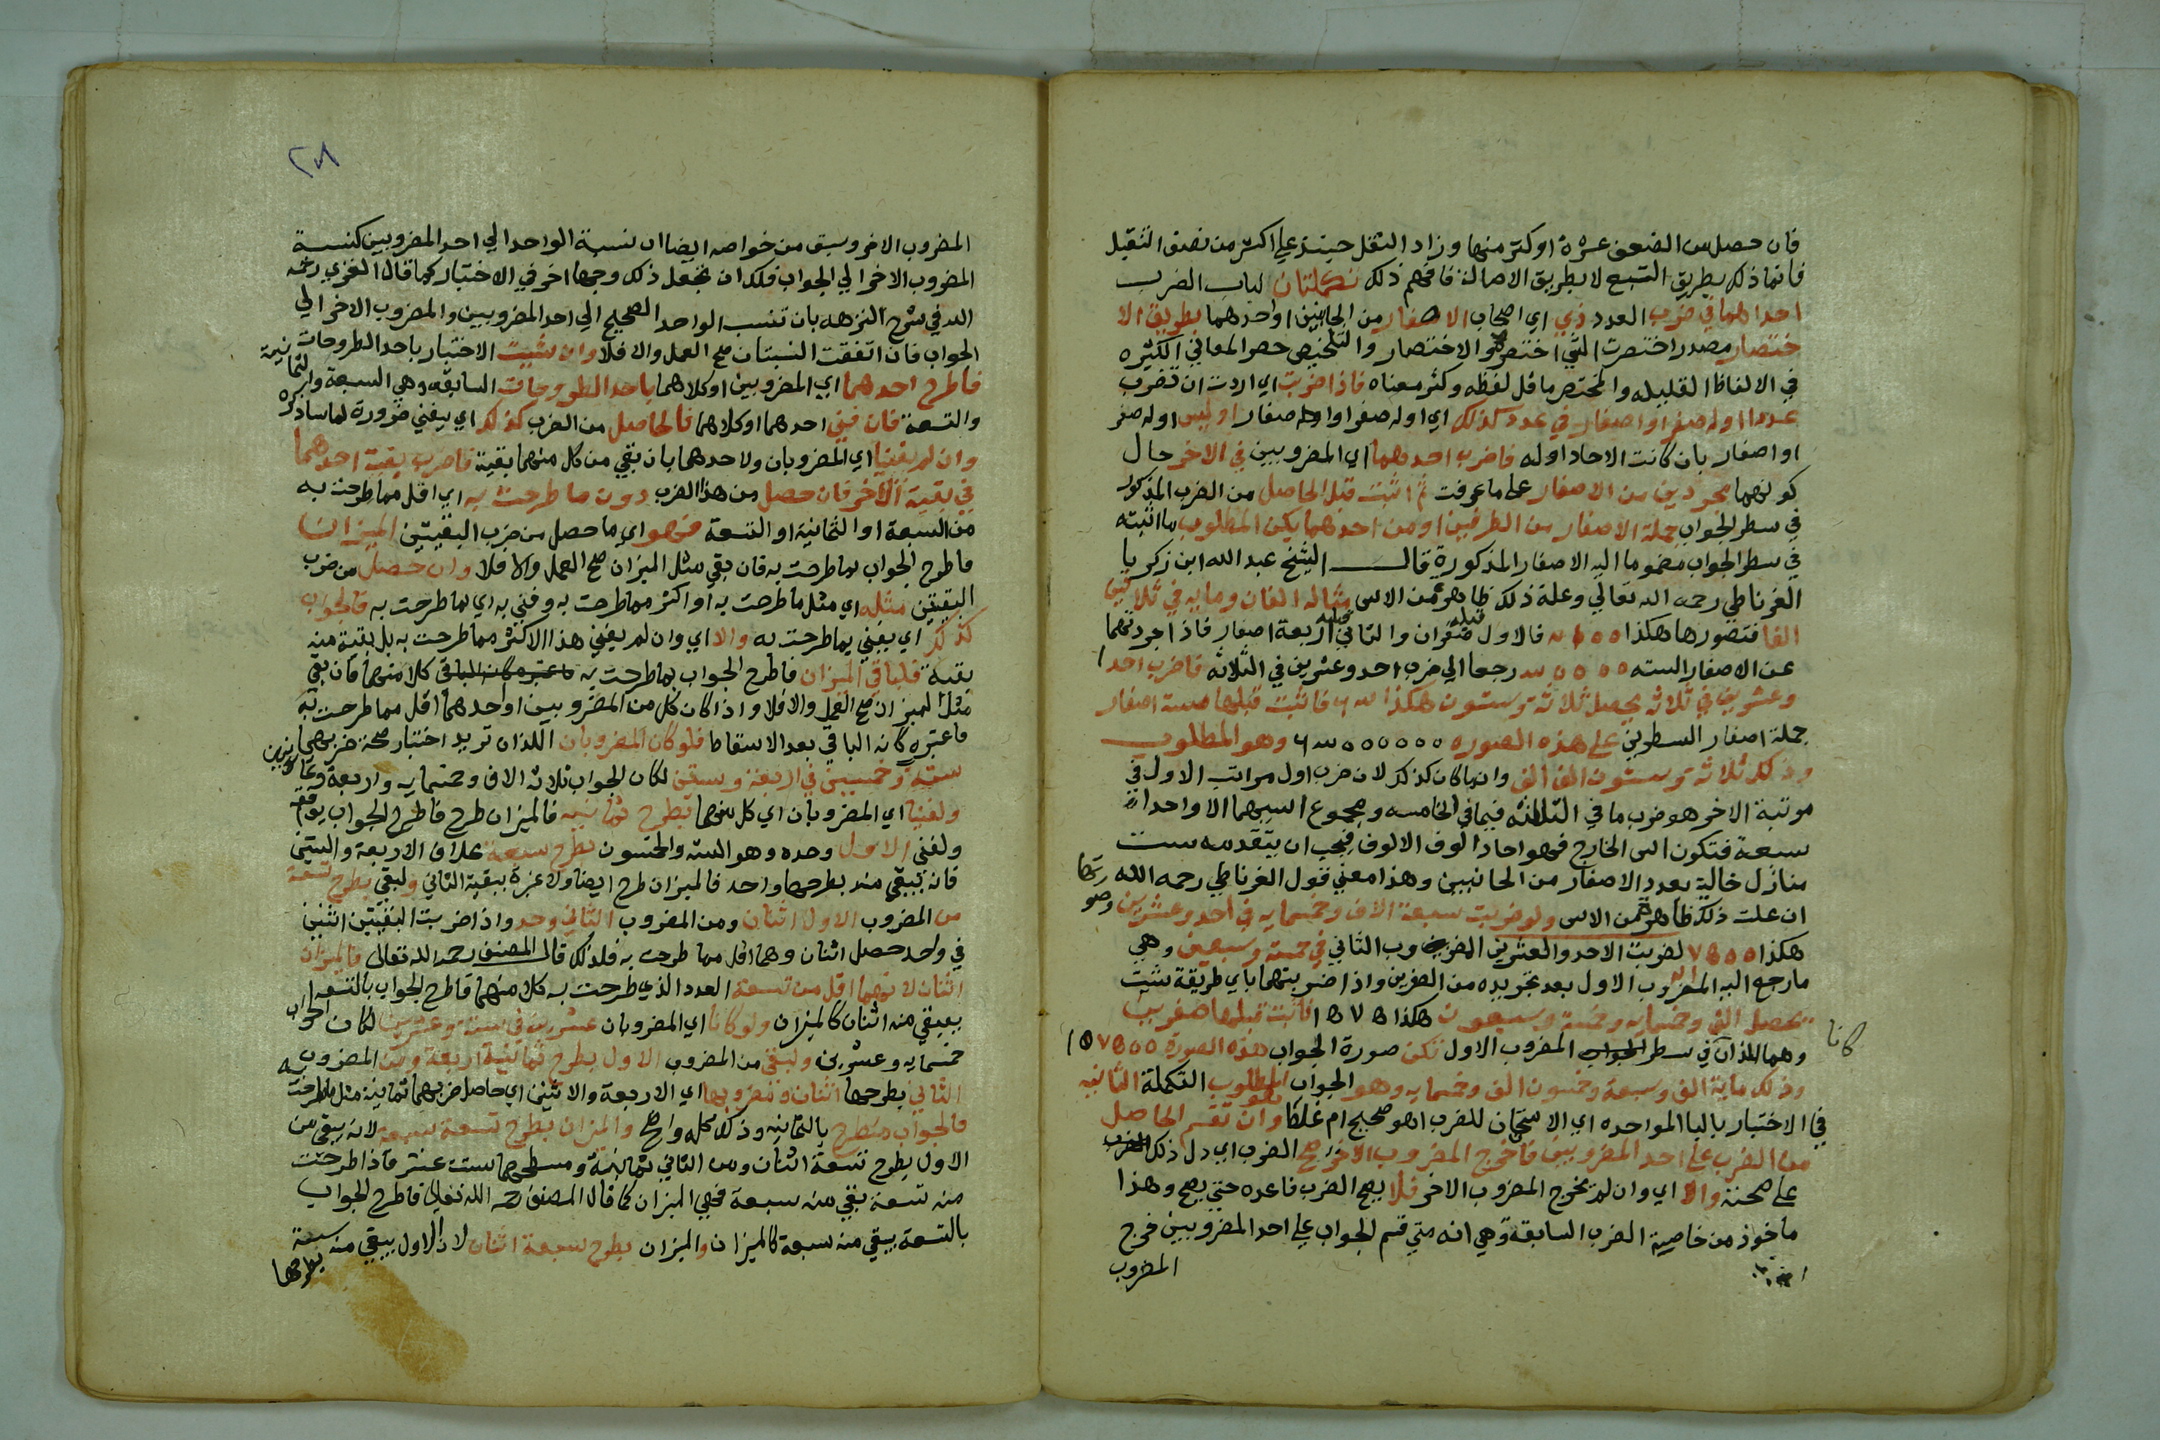 فان حصل من الضعف عشرة او كثر منها وزاد الثقل حينئذ علي اكثر من نصف الثقيل
فانما ذلك بطريق التبع لا بطريق الاصالة فافهم ذلك تكملتان لباب الضرب
احداهما في ضرب العدد ذي اي اصحاب الاصفار من الجانبين او احدهما بطريق الا
ختصار مصدر اختصرت الشي اختصره والاختصار والتلخيص حصر المعاني الكثيره
في الالفاظ القليله والمختصر ما قل لفظه وكثر معناه فاذا ضربت اي اردت ان تضرب
عددا اوله صفر او اصفار في عدد كذلك اي اوله صفر او اوله صفار او ليس اوله صفر
او اصفار بان كانت الاحاد اوله فاضرب احدهما اي المضروبين في الاخر حال
كونهما مجردين من الاصفار علي ما عرفت ثم اثبت قبل الحاصل من الضرب المذكور
في سطر الجواب جملة الاصفار من الطرفين او من احدهما يكن المطلوب ما اثبته
في سطر الجواب مضموما اليه الاصفار المذكورة قال الشيخ عبد الله ابن زكريا
الغرناطي رحمه الله تعالي وعلة ذلك ظاهرة من الاس مثاله الفان ومايه في ثلاثين
الفا فتصورها هكذا فالاول قبله صفران والثاني قبله اربعة اصفار فاذا جردتهما
عن الاصفار السته رجعا الي ضرب احد وعشرين في الثلاثه فاضرب احدا
وعشرين في ثلاثه يحصل ثلاثة وستون هكذا فاثبت قبلها ستة اصفار
جملة اصفار السطرين علي هذه الصوره وهو المطلوب
وذلك ثلاثة وستون الف الف وانما كان كذلك لان ضرب اول مراتب الاول في
مرتبة الاخر هو ضرب ما في الثالثه فيما في الخامسه ومجموع اسيهما الا واحدا
سبعة فتكون اس الخارج فهو احاد الوف الالوف فيجب ان يتقدمه ست
منازل خالية بعدد الاصفار من الجانبين وهذا معني قول الغرناطي رحمه الله
ان علت ذلك ظاهرة من الاس ولو ضربت سبعة الاف وخمسمايه في احد وعشرين وصورتها
هكذا ٧٥٠٠ لضربت الاحد والعشرين المضروب الثاني في خمسة وسبعين وهي
ما رجع اليه المضروب الاول بعد تجريده من الصفرين واذا ضربتهما باي طريقة شئت
يحصل الف وخمسمايه وخمسة وسبعون هكذا ١٥٧٥ فاثبت قبلها صفرين
كانا
وهما اللذان في سطر المضروب الاول تكن صورة الجواب هذه الصورة ١٥٧٥٠٠
وذلك ماية الف وسبعة وخمسون الف وخمسمايه وهو الجواب المطلوب التكملة الثانيه
في الاختبار بالبا الموحده اي الامتحان للضرب اهو صحيح ام غلط وان تقسم الحاصل
من الضرب علي احد المضروبين فاخرج المضروب الاخر صح الضرب اي دل ذلك
علي صحته والا اي وان لم يخرج المضروب الاخر فلا يصح الضرب فاعده حتي يصح وهذا
ماخوذ من خاصية الضرب السابقة وهي انه متي قسم الجواب علي احد المضروبين خرج
المضروب
المضروب الاخر وسبق من خواصه ايضا ان نسبة الواحد الي احد المضروبين كنسبة
المضروب الاخر الي الجواب فلك ان تجعل ذلك وجها اخر في الاختبار كما قال الغزي رحمه
الله في شرح النزهه بان تنسب الواحد الصحيح الي احد المضروبين والمضروب الاخر الي
الجواب فان اتفقت النسبتان صح العمل والا فلا وان شئت الاختبار باحد الطروحات
فاطرح احدهما اي المضروبين او كلاهما باحد الطروحات السابقه وهي السبعة والثمانية
والتسعة فان فني احدهما او كلاهما فالحاصل من الضرب كذلك اي يفني ضرورة لما ساذكره
وان لم يفنيا اي المضروبان ولا احدهما بان بقي من كل منهما بقية فاضرب بقية احدهما
في بقية الاخر فان حصل من هذا الضرب دون ما طرحت به اي اقل مما طرحت به
من السبعة او الثمانية او التسعة فهو اي ما حصل من ضرب البقيتين الميزان
فاطرح الجواب بما طرحت به فان بقي مثل الميزان صح العمل والا فلا وان حصل من ضرب
البقيتين مثله اي مثل ما طرحت به او اكثر مما طرحت به وفني به اي بما طرحت به فالجواب
كذلك اي يفني بما طرحت به والا اي وان لم يفني هذا الاكثر مما طرحت به بل بقيت منه
بقية فالباقي الميزان فاطرح الجواب بما طرحت به كلا منهما فان بقي
مثل الميزان صح العمل والا فلا واذا كان كل من المضروبين او احدهما اقل مما طرحت به
فاعتبره كانه الباقي بعد الاسقاط فلو كان المضروبان اللذان تريد اختبار صحة ضربهما
ستة وخمسين في اربعة وستين لكان الجواب ثلاثة الاف وخمسمايه واربعة وثمانين
ولفنيا اي المضروبان اي كل منهما بطرح ثمانيه فالميزان طرح فاطرح الجواب يوافقه
ولفني الاول وحده وهو الستة والخمسون بطرح سبعة بخلاف الاربعة والستين
فانه يبقي منه بطرحها واحد فالميزان طرح ايضا ولا عبرة ببقية الثاني ولبقي بطرح تسعة
من المضروب الاول اثنان ومن المضروب الثاني واحد واذا ضربت البقيتين اثنين
في واحد حصل اثنان وهما اقل مما طرحت به فلذلك قال المصنف رحمه الله تعالي فالميزان
اثنان لانهما اقل من تسعة العدد الذي طرحت به كلا منهما فاطرح الجواب بالتسعة
يبقي منه اثنان كالميزان ولو كانا اي المضروبان عشرين في ستة وعشرين لكان الجواب
خمسمايه وعشرين ولبقي من المضروب الاول بطرح ثمانية اربعة ومن المضروب
الثاني بطرحها اثنان ومضروبهما اي الاربعة والاثنين اي حاصل ضربهما ثمانية مثل ما طرحت به
فالجواب منطرح بالثمانيه وذلك كله واضح والميزان بطرح تسعة سبعة لانه يبقي من
الاول بطرح تسعة اثنان ومن الثاني ثمانية ومسطحهما ستة عشر فاذا طرحت
منه تسعة بقي منه سبعة فهي الميزان كما قال المصنف رحمه الله تعالي فاطرح الجواب
بالتسعة يبقي منه سبعة كالميزان والميزان بطرح سبعة اثنان لان الاول يبقي منه ستة
بطرحها